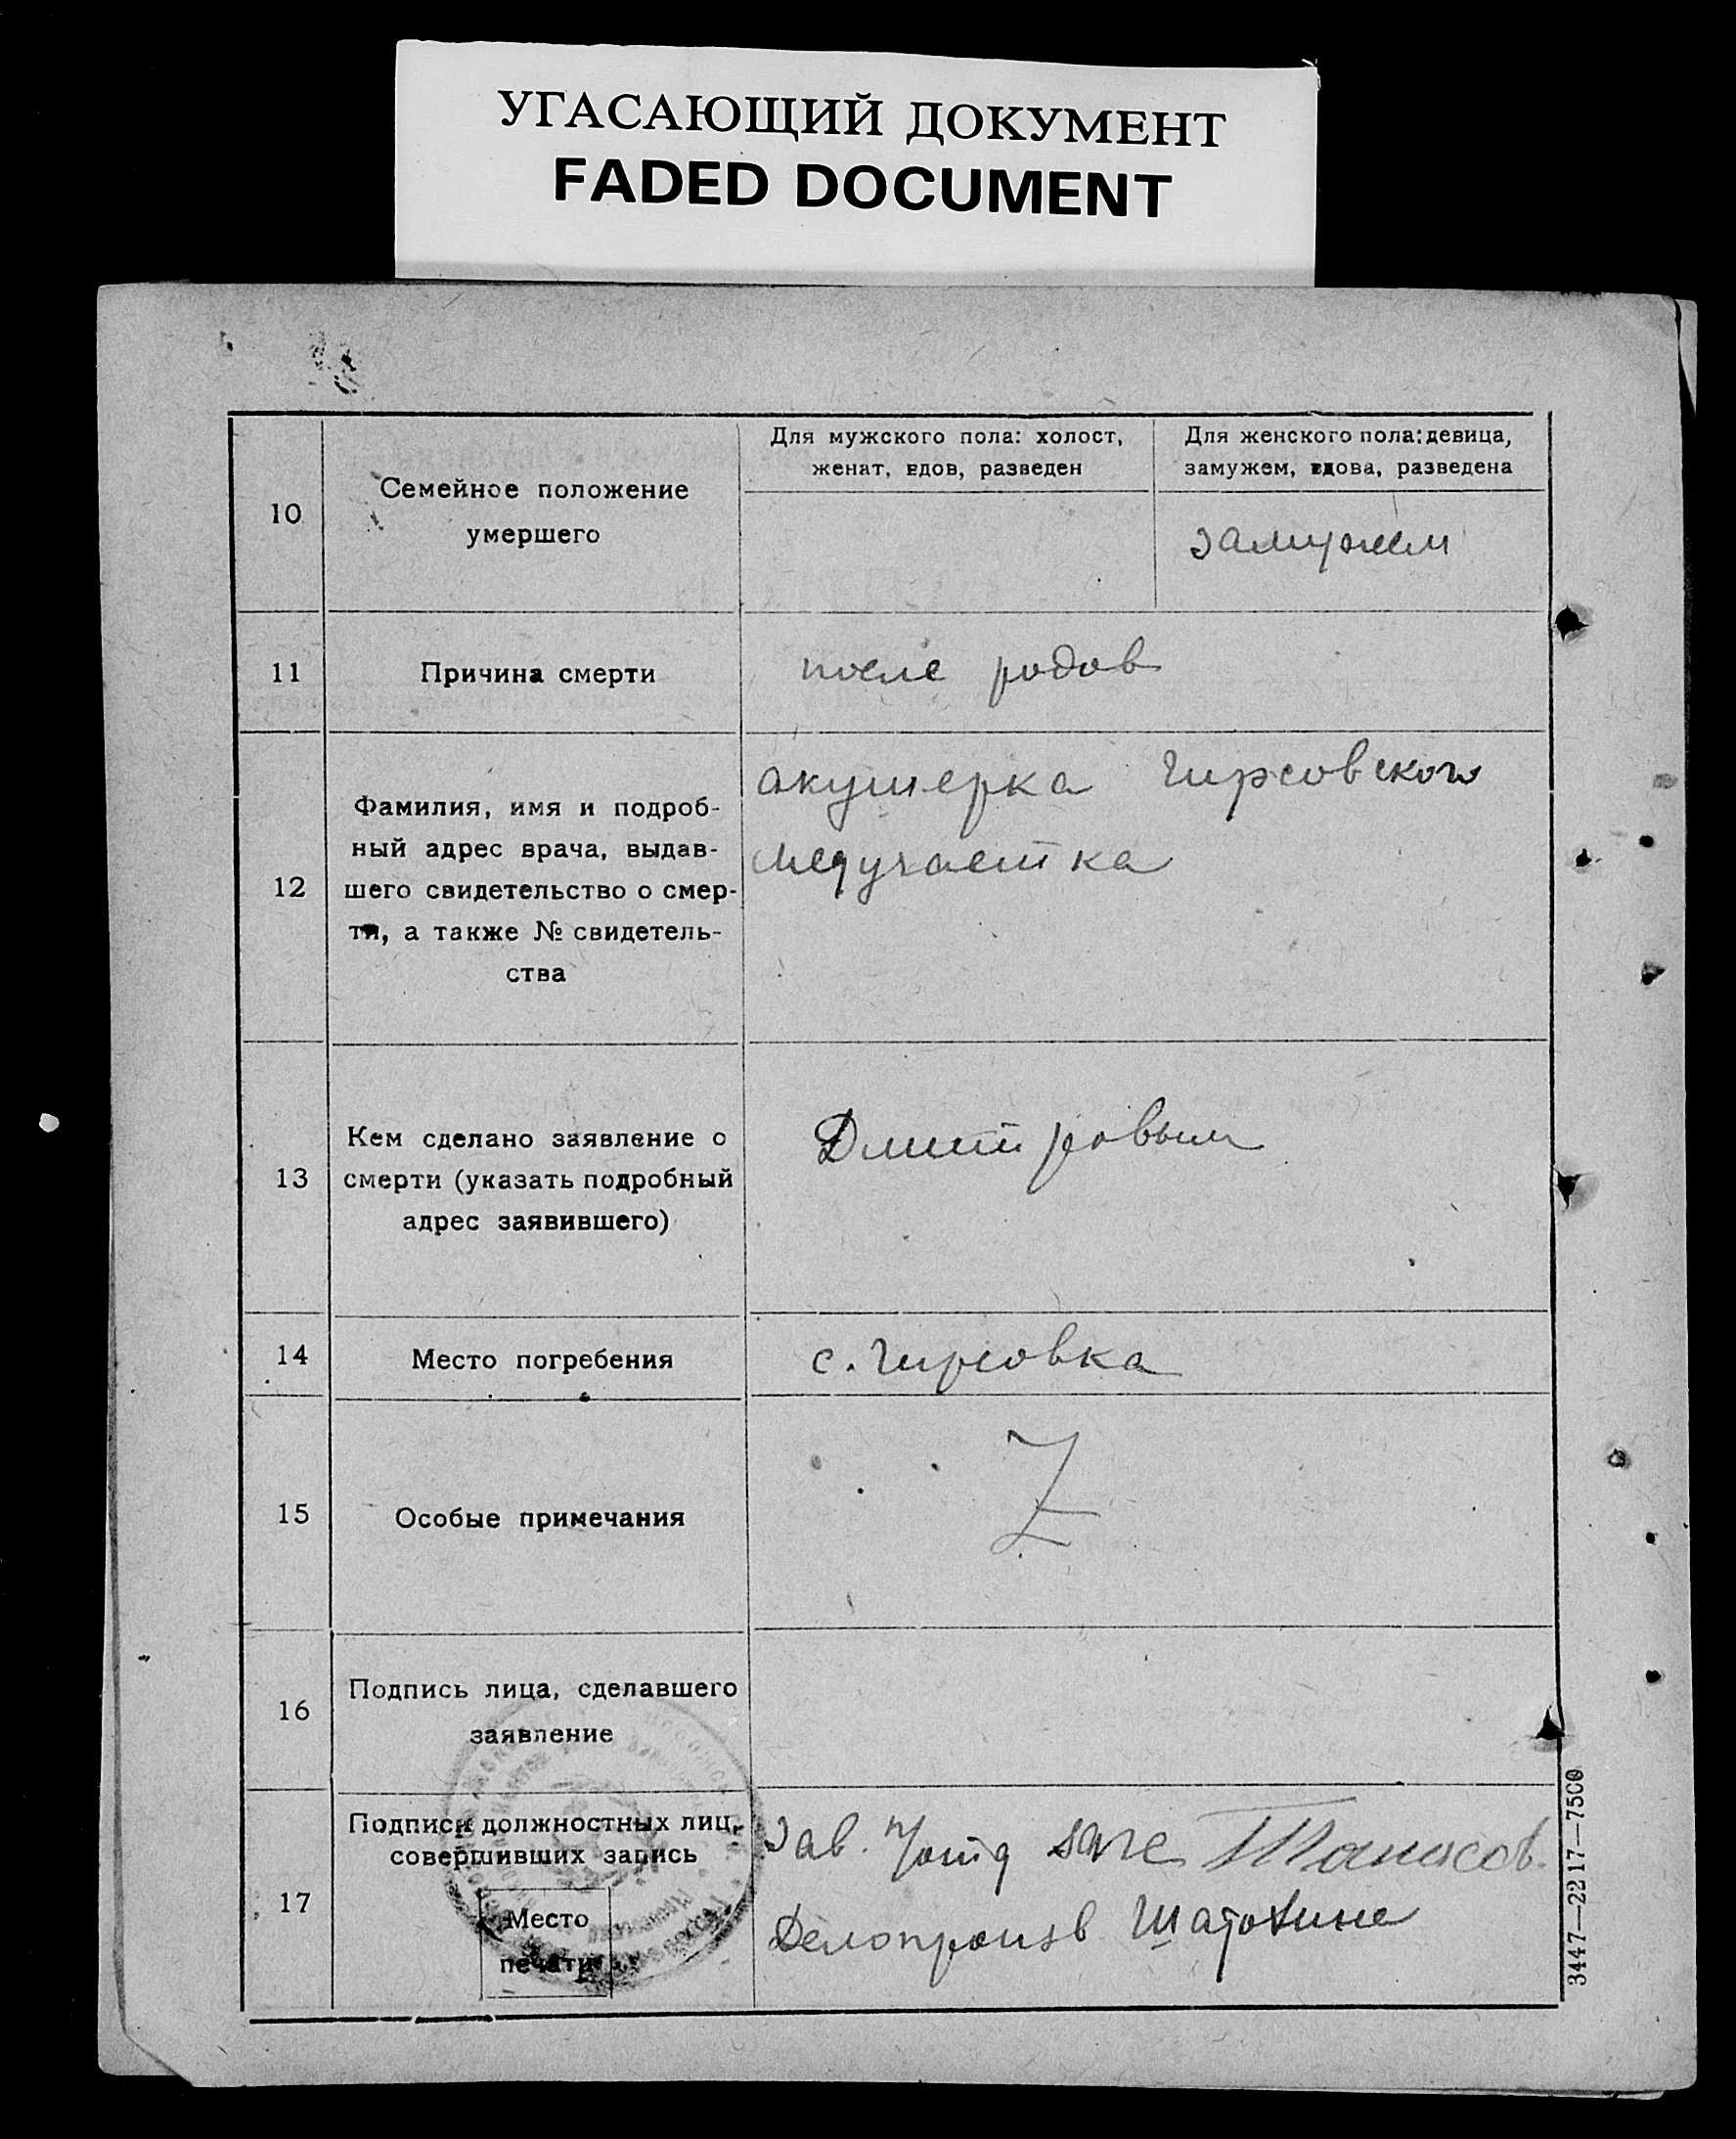 УГАСАЮЩИЙ ДОКУМЕНТ
FADED DOCUMENT
10
Семейное положение
умершего
Для мужского пола: холост,
женат, вдов, разведен
Для женского пола: девица,
замужем, вдова, разведена
замужем
11
Причина смерти
после родов
12
Фамилия, имя и подроб-
ный адрес врача, выдав-
шего свидетельство о смер-
ти, а также № свидетель-
ства
акушерка Чирсовского
медучастка
13
Кем сделано заявление о
смерти (указать подробный
адрес заявившего)
Дмитровым
14
Место погребения
с. Чирсовка
15
Особые примечания
Z
16
Подпись лица, сделавшего
заявление
17
Подписи должностных лиц,
совершивших запись
Место
печати
Зав. загс
Делопроизв
3447—2217—7500